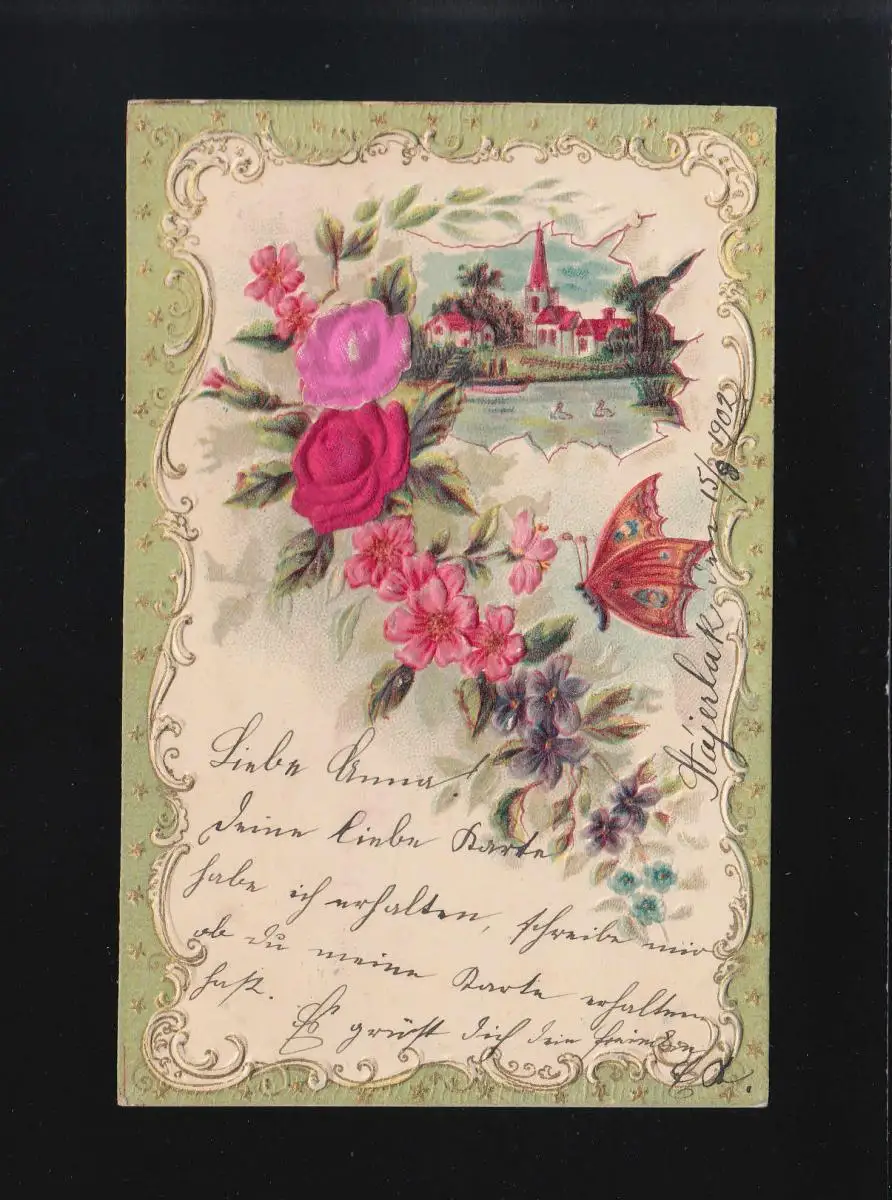 Stájerlak 15/8 1902
Liebe Anna!
Deine liebe Karte
habe ich erhalten, schreibe mir
ob du meine Karte erhalten
hast.
Es grüßt dich dein